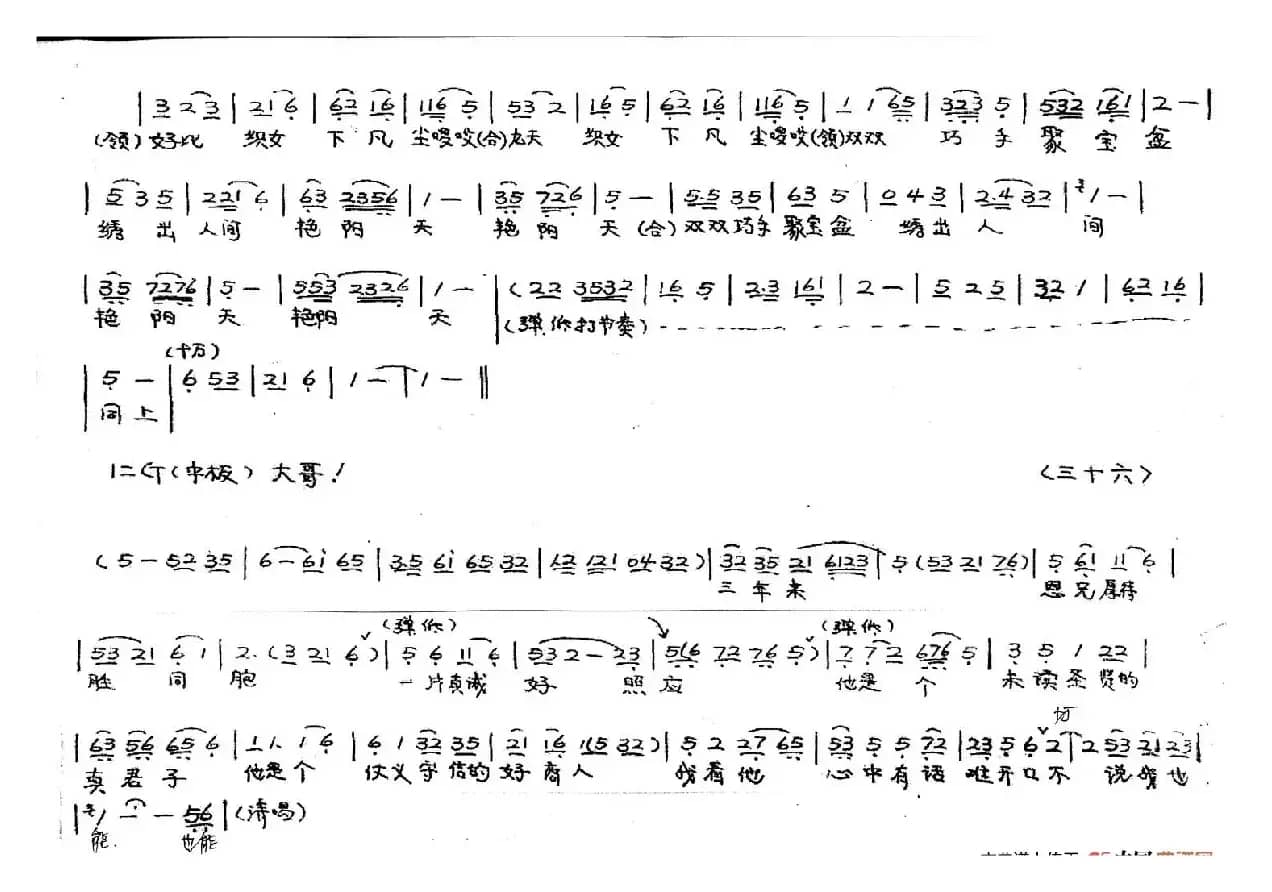 |3 2 3|21 6|62 16|116 5|53 2|16 5|62 16|116 5|1 1 65|323 5|532 161|2 —|
(领)好比 织女 下凡 尘嗳哎(合)龙天 织女 下凡 尘嗳哎(领)双双 巧手 聚宝盆
|5 3 5|221 6|63 2356|1 —|35 726|5 —|5.5 35|63 5|0 4 3|2.4 32|1 —|
绣出人间 艳阳天 艳阳天(合)双双巧手聚宝盆 绣出人间
|35 7276|5 —|553 2326|1 —|(22 3532|16 5|2.3 161|2 —|5 2 5|32 1|62 16|
艳阳天 艳阳天 (弹作打节奏)
(十万)
|5 —|6 53|21 6|1 —|1 —‖
同上
(中板) 大哥! (三十六)
(5 — 52 35|6 — 61 65|3.5 61 65 32|12 121 04 32)|32 35 21 6123|5 (53 21 76)|5 61 11 6|
三年来 恩兄厚待
(弹作) (弹作)
|53 21 6 1|2. (3 21 6)|5 6 11 6|53 2 — 23|5(6 72 76 5)|7 7 2 676 5|3 5 1 22|
胜同胞 一片真诚 好照应 他是个 未读圣贤的
|63 56 65 6|1 1. 1 6|6 1 32 35|21 16 1(5 32)|5 2 27 65|53 5 5 72|23 5 6 2|2 53 21 23|
真君子 他是个 仗义守信的好商人 我看他 心中有话难开口不说我也
|1 — — 56|(清唱)
能 也能